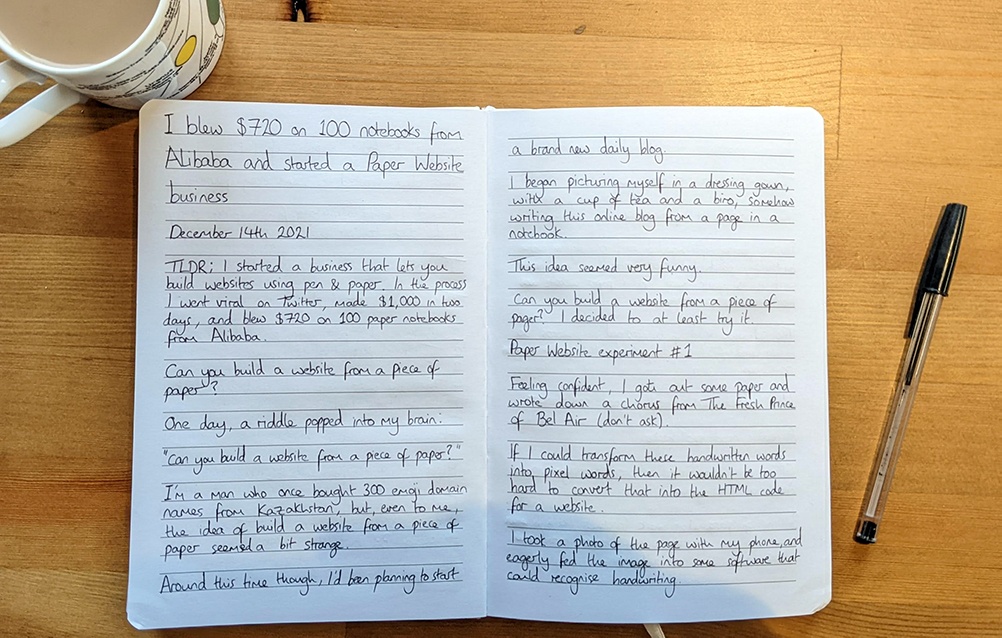 I blew $720 on 100 notebooks from
Alibaba and started a Paper Website
business
December 14th 2021
TLDR; I started a business that lets you
build websites using pen & paper. In the process
I went viral on Twitter, made $1,000 in two
days, and blew $720 on 100 paper notebooks
from Alibaba.
Can you build a website from a piece of
paper?
One day, a riddle popped into my brain:
"Can you build a website from a piece of paper?"
I'm a man who once bought 300 emoji domain
names from Kazakhstan, but, even to me,
the idea of build a website from a piece of
paper seemed a bit strange.
Around this time though, I'd been planning to start
a brand new daily blog.
I began picturing myself in a dressing gown,
with a cup of tea and a biro, somehow
writing this online blog from a page in a
notebook.
This idea seemed very funny.
Can you build a website from a piece of
paper? I decided to at least try it.
Paper Website experiment #1
Feeling confident, I got out some paper and
wrote down a chorus from The Fresh Prince
of Bel Air (don't ask).
If I could transform these handwritten words
into pixel words, then it wouldn't be too
hard to convert that into the HTML code
for a website.
I took a photo of the page with my phone, and
eagerly fed the image into some software that
could recognise handwriting